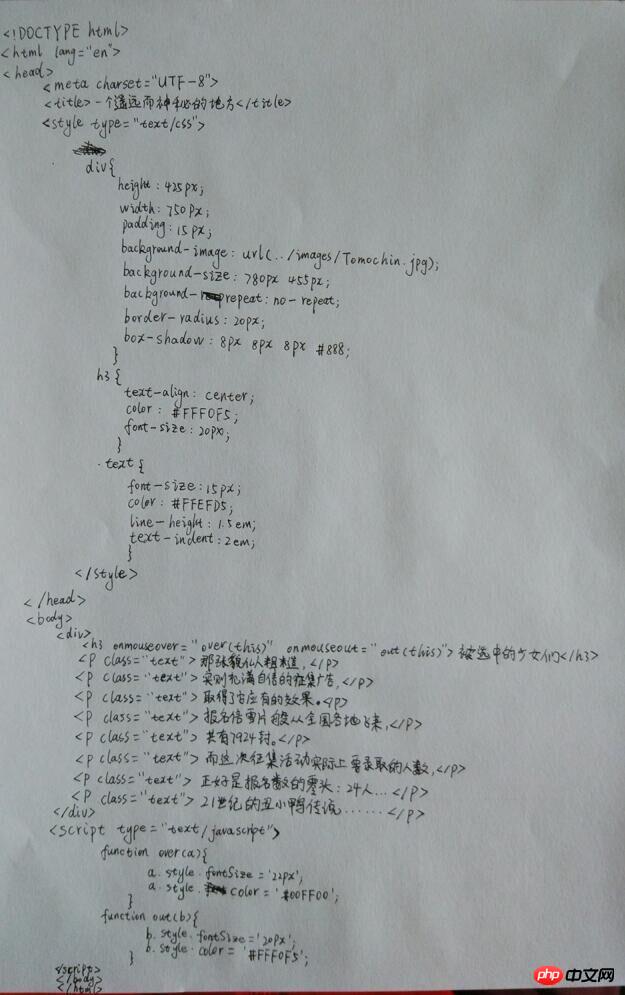 <!DOCTYPE html>
<html lang="en">
<head>
<meta charset="UTF-8">
<title>一个遥远而神秘的地方</title>
<style type="text/css">
div{
height: 425px;
width: 750px;
padding: 15px;
background-image: url(../images/Tomochin.jpg);
background-size: 780px 455px;
background-repeat: no-repeat;
border-radius: 20px;
box-shadow: 8px 8px 8px #888;
}
h3{
text-align: center;
color: #FFF0F5;
font-size: 20px;
}
.text{
font-size: 15px;
color: #FFEFD5;
line-height: 1.5em;
text-indent: 2em;
}
</style>
</head>
<body>
<div>
<h3 onmouseover="over(this)" onmouseout="out(this)">被选中的少女们</h3>
<p class="text">那张貌似粗糙,</p>
<p class="text">实则充满自信的征集广告,</p>
<p class="text">取得了应有的效果。<p>
<p class="text">报名信雪片般从全国各地飞来,</p>
<p class="text">共有7924封。</p>
<p class="text">而这次征集活动实际上要录取的人数,</p>
<p class="text">正好是报名数的零头:24人...</p>
<p class="text">21世纪的丑小鸭传说......</p>
</div>
<script type="text/javascript">
function over(a){
a.style.fontSize='22px';
a.style.color='#00FF00';
}
function out(b){
b.style.fontSize='20px';
b.style.color='#FFF0F5';
}
</script>
</body>
</html>
php中文网